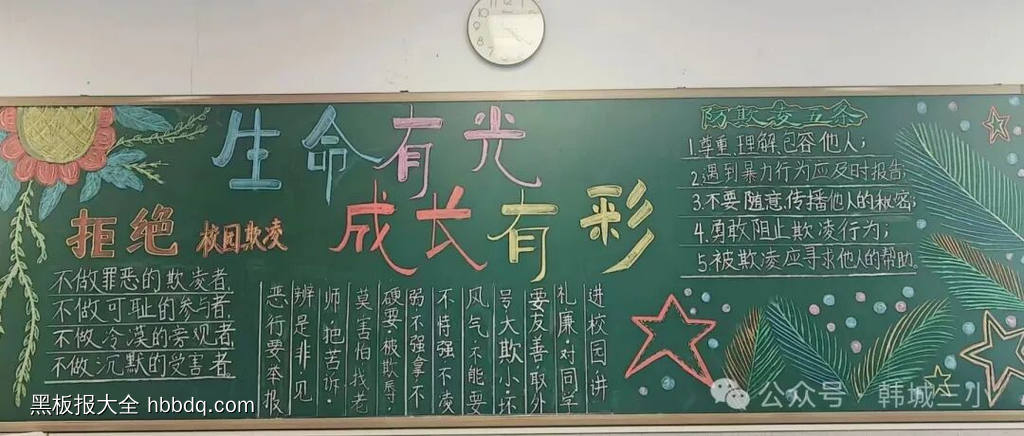 生命有光
成长有彩
拒绝 校园欺凌
不做罪恶的欺凌者
不做可耻的参与者
不做冷漠的旁观者
不做沉默的受害者
进校园·讲
礼廉·对同学
要友善·取外
号·大欺小·坏
风气·不能要
不恃强·不凌
弱·不强拿·不
硬要·被欺辱·
莫害怕·找老
师·把苦诉·
辨是非·见
恶行要举报
防欺凌五条
1.尊重、理解、包容他人;
2.遇到暴力行为应及时报告
3.不要随意传播他人的秘密;
4.勇敢阻止欺凌行为;
5.被欺凌应寻求他人的帮助.
黑板报大全 hbbdq.com
公众号 · 韩城三小